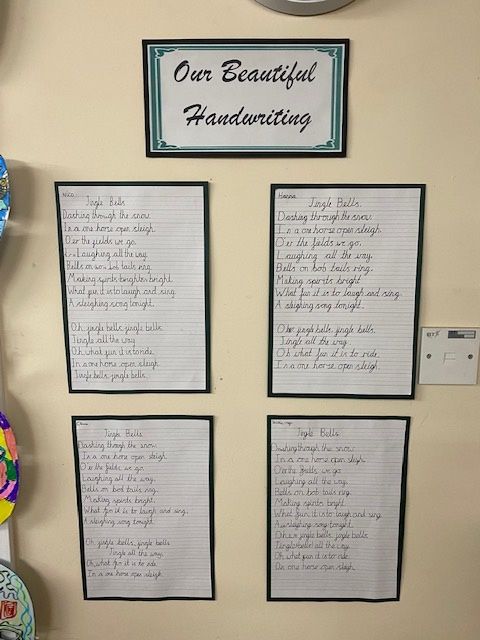 Our Beautiful
Handwriting
Nico
Jingle Bells
Dashing through the snow.
In a one horse open sleigh.
O'er the fields we go.
Laughing all the way.
Bells on bob tails ring.
Making spirits bright.
What fun it is to laugh and sing
A sleighing song tonight.
Oh jingle bells, jingle bells.
Jingle all the way.
Oh what fun it is to ride.
In a one horse open sleigh.
Jingle bells, jingle bells.
Hanna
Jingle Bells.
Dashing through the snow.
In a one horse open sleigh.
O'er the fields we go.
Laughing all the way.
Bells on bob tails ring.
Making spirits bright
What fun it is to laugh and sing.
A sleighing song tonight.
Oh jingle bells, jingle bells.
Jingle all the way.
Oh what fun it is to ride.
In a one horse open sleigh.
Jingle Bells
Dashing though the snow.
In a one horse open sleigh.
O'er the fields we go.
Laughing all the way.
Bells on bod tails ring.
Making spirits bright.
What fun it is to laugh and sing.
A sleighing song tonight.
Oh jingle bells, jingle bells
Jingle all the way.
Oh what fun it is to ride.
In a one horse open sleigh.
Jingle Bells
Dashing through the snow.
In a one horse open sleigh.
O'er the fields we go.
Laughing all the way.
Bells on bob tails ring.
Making spirits bright.
What fun it is to laugh and sing
A sleighing song tonight.
Oh jingle bells, jingle bells.
Jingle all the way.
Oh what fun it is to ride.
one horse open sleigh.